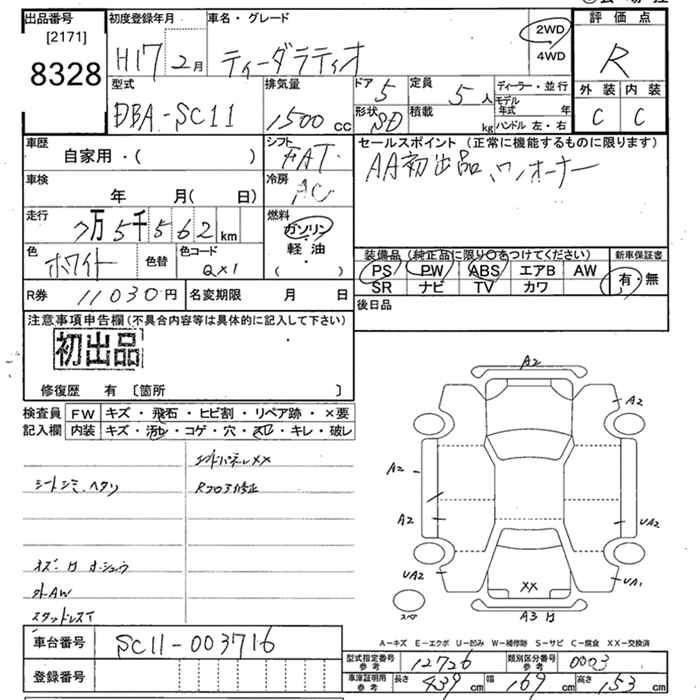 出品番号
[2171]
8328
初度登録年月
H17 2月
車名・グレード
ティーダラティオ
2WD
4WD
評価点
R
外装 内装
C C
型式
DBA-SC11
排気量
1500 cc
ドア 5
形状 SD
定員 5人
積載 kg
ディーラー・並行
モデル年式 年
ハンドル 左・右
車歴
自家用・( )
シフト
FAT
セールスポイント (正常に機能するものに限ります)
AA初出品、ワンオーナー
車検
年 月( 日)
冷房
AC
走行
7万5千562km
燃料
ガソリン
軽油
( )
色
ホワイト
色替
色コード
QX1
装備品 (純正品に限り○をつけてください)
PS PW ABS エアB AW
SR ナビ TV カワ
新車保証書
有・無
R券 11030円
名変期限 月 日
後日品
注意事項申告欄(不具合内容等は具体的に記入して下さい)
初出品
修復歴 有 〔箇所 〕
検査員 FW キズ・飛石・ヒビ割・リペア跡・×要
記入欄 内装 キズ・汚レ・コゲ・穴・スレ・キレ・破レ
エンドパネルXX
シートシミ、ヘタリ
Rフロア修正
外AW
スタッドレスT
A2
A2
A2
A2
UA2
UA2
UA1
XX
スペア
A3
A-キズ E-エクボ U-凹み W-補修跡 S-サビ C-腐食 XX-交換済
車台番号 SC11-003716
登録番号
型式指定番号 参考 12726
類別区分番号 参考 0003
車庫証明用 参考 長さ 439cm 幅 169cm 高さ 153cm